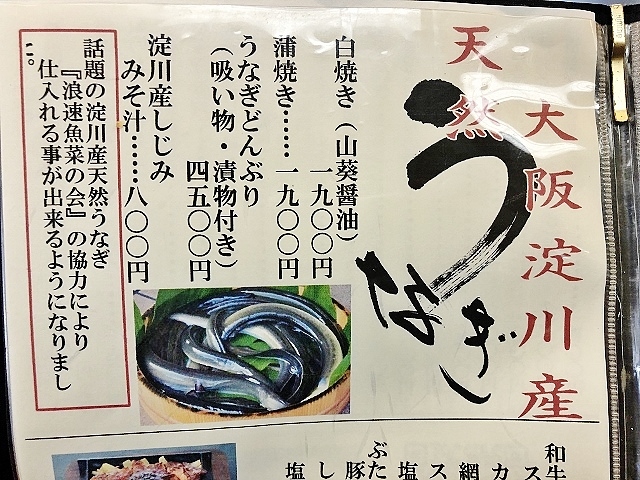 大阪淀川産
天然
うなぎ
白焼き（山葵醤油）
一九〇〇円
蒲焼き……一九〇〇円
うなぎどんぶり
（吸い物・漬物付き）
四五〇〇円
淀川産しじみ
みそ汁……八〇〇円
話題の淀川産天然うなぎ
『浪速魚菜の会』の協力により
仕入れる事が出来るようになりまし
た。
和牛
ス
カ
網
ス
塩
ぶた
豚
し
塩